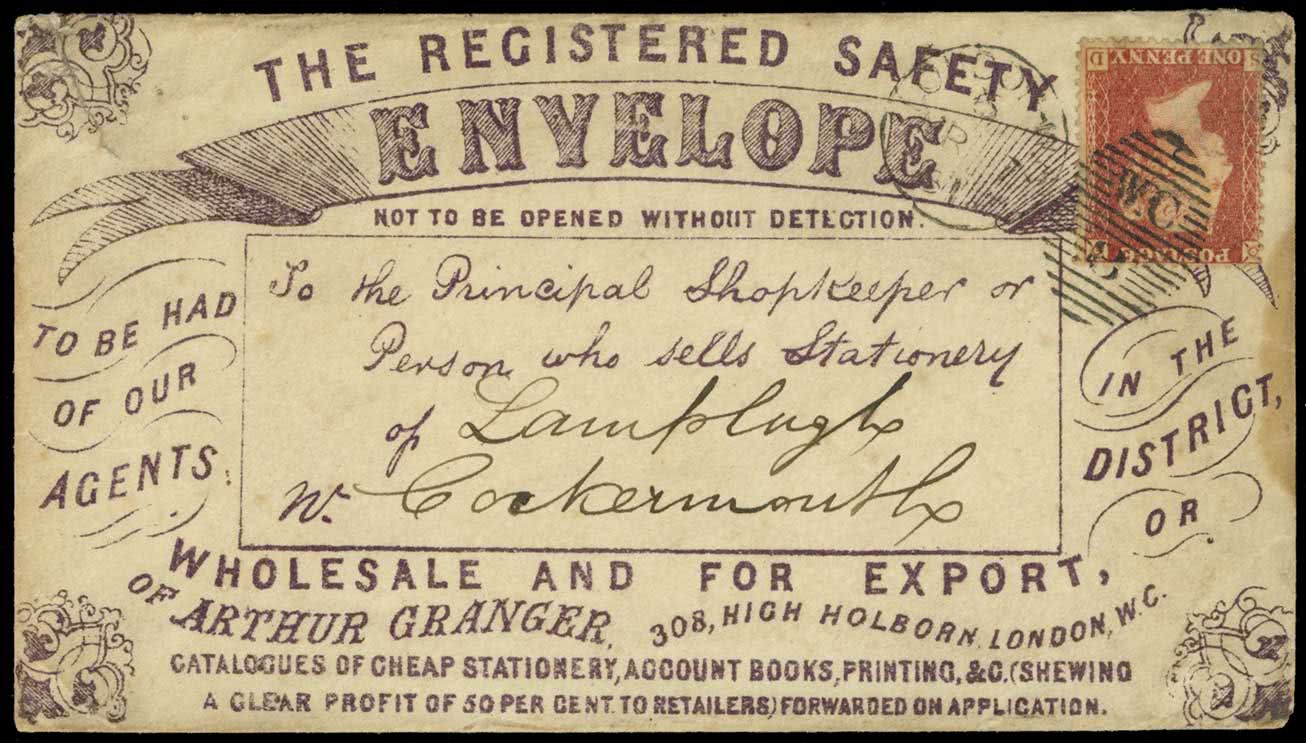 THE REGISTERED SAFETY
ENVELOPE
NOT TO BE OPENED WITHOUT DETECTION.
To the Principal Shopkeeper or
Person who sells Stationery
of Lamplugh
Nr. Cockermouth
TO BE HAD
OF OUR
AGENTS
IN THE
DISTRICT,
OR
WHOLESALE AND FOR EXPORT,
OF ARTHUR GRANGER, 308, HIGH HOLBORN, LONDON, W.C.
CATALOGUES OF CHEAP STATIONERY, ACCOUNT BOOKS, PRINTING, &C. (SHEWING
A CLEAR PROFIT OF 50 PER CENT. TO RETAILERS) FORWARDED ON APPLICATION.
POSTAGE
ONE PENNY
S D
WC